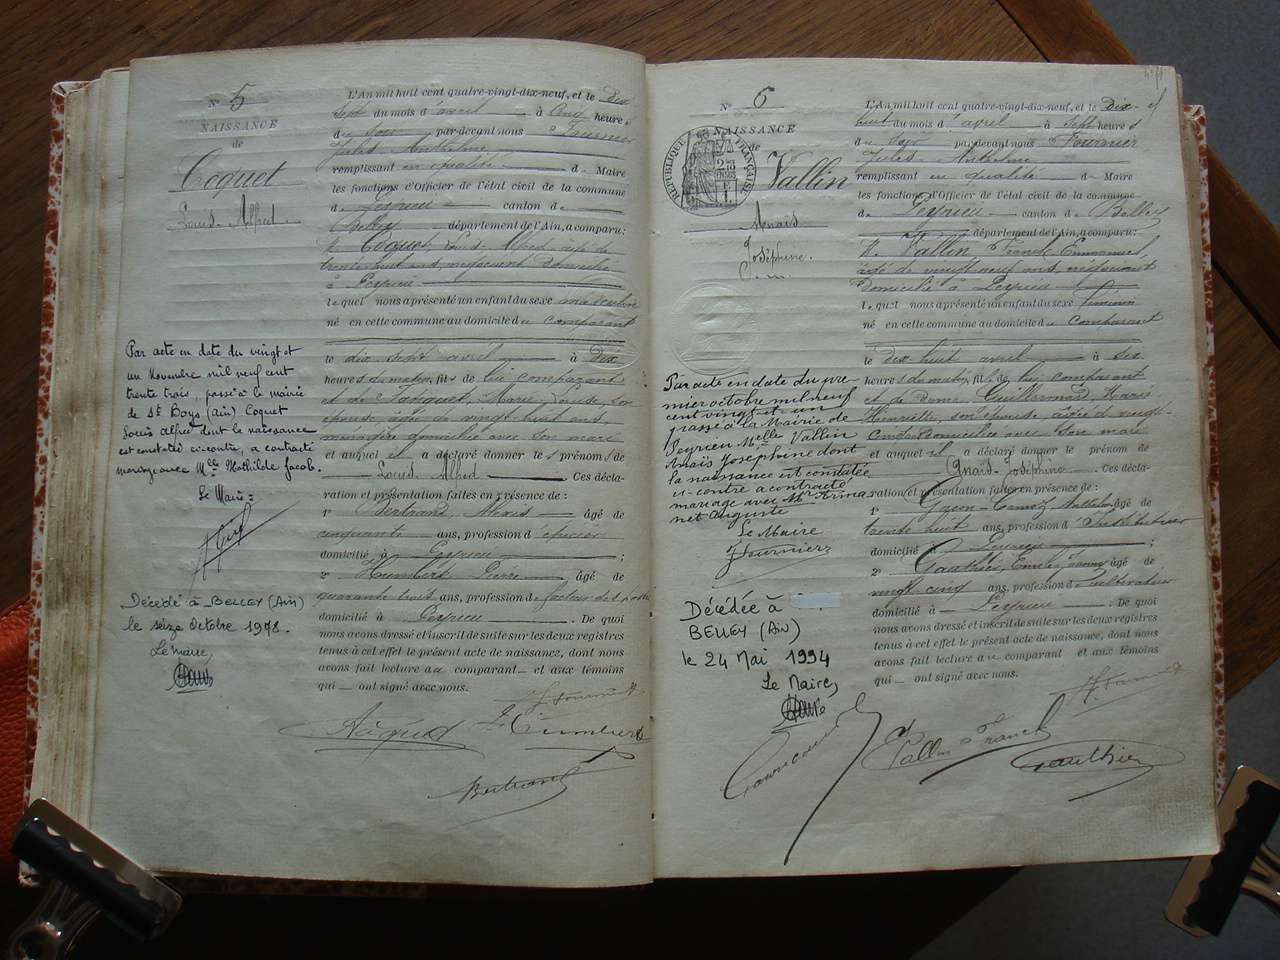 N° 5
NAISSANCE
de
Coquet
Louis Alfred
Par acte en date du vingt et
un Novembre mil neuf cent
trente trois, passé à la mairie
de St Boys (Ain) Coquet
Louis Alfred dont la naissance
est constatée ci-contre, a contracté
mariage avec Melle Mathilde Jacob.
Le Maire:
Décédé à BELLEY (Ain)
le seize Octobre 1978.
Le maire,
L'An mil huit cent quatre-vingt-dix-neuf, et le Dix
sept du mois d'avril à cinq heures
du soir par-devant nous Fournier
Jules Anthelme
remplissant en qualité de Maire
les fonctions d'Officier de l'état civil de la commune
de Peyrieu canton de
Belley, département de l'Ain, a comparu:
M. Coquet, Louis Alfred, âgé de
trente huit ans, négociant domicilié
à Peyrieu
lequel nous a présenté un enfant du sexe masculin
né en cette commune au domicile du comparant
le dix-sept avril à dix
heures du matin, fils de lui comparant
et de Marie Louise, son
épouse, âgée de vingt huit ans
ménagère domiciliée avec son mari
et auquel il a déclaré donner les prénoms de
Louis Alfred. Ces décla-
ration et présentation faites en présence de:
1° Bertrand Alexis âgé de
cinquante ans, profession d'épicier
domicilié à Peyrieu;
2° Humbert Pierre âgé de
quarante trois ans, profession de facteur des postes
domicilié à Peyrieu. De quoi
nous avons dressé et inscrit de suite sur les deux registres
tenus à cet effet le présent acte de naissance, dont nous
avons fait lecture au comparant et aux témoins
qui ont signé avec nous.
J. Fournier
Humbert
Bertrand
N° 6
NAISSANCE
de
RÉPUBLIQUE FRANÇAISE
Vallin
Anaïs
Joséphine
Par acte en date du pre-
mier octobre mil neuf
cent vingt et un
passé à la Mairie de
Peyrieu Melle Vallin
Anaïs Joséphine dont
la naissance est constatée
ci-contre a contracté
mariage avec Mr
Auguste
Le Maire
J Fournier
Décédée à
BELLEY (Ain)
le 24 Mai 1994
Le Maire,
L'An mil huit cent quatre-vingt-dix-neuf, et le Dix-
huit du mois d'avril à sept heures
du soir par-devant nous Fournier
Jules Anthelme
remplissant en qualité de Maire
les fonctions d'Officier de l'état civil de la commune
de Peyrieu canton de Belley
département de l'Ain, a comparu:
M. Vallin Franck Emmanuel,
âgé de vingt neuf ans, négociant
domicilié à Peyrieu
lequel nous a présenté un enfant du sexe féminin
né en cette commune au domicile du comparant
le dix-huit avril à six
heures du matin, fils de lui comparant
et de Dame Guillermard, Marie
Henriette, son épouse âgée de vingt-
cinq domiciliée avec son mari
et auquel il a déclaré donner le prénom de
Anaïs-Joséphine. Ces décla-
ration et présentation faites en présence de:
1° âgé de
trente huit ans, profession d'Instituteur
domicilié à Peyrieu;
2° Gauthier, âgé de
vingt cinq ans, profession de Cultivateur
domicilié à Peyrieu. De quoi
nous avons dressé et inscrit de suite sur les deux registres
tenus à cet effet le présent acte de naissance, dont nous
avons fait lecture au comparant et aux témoins
qui ont signé avec nous.
J. Fournier
Vallin Franck
Gauthier